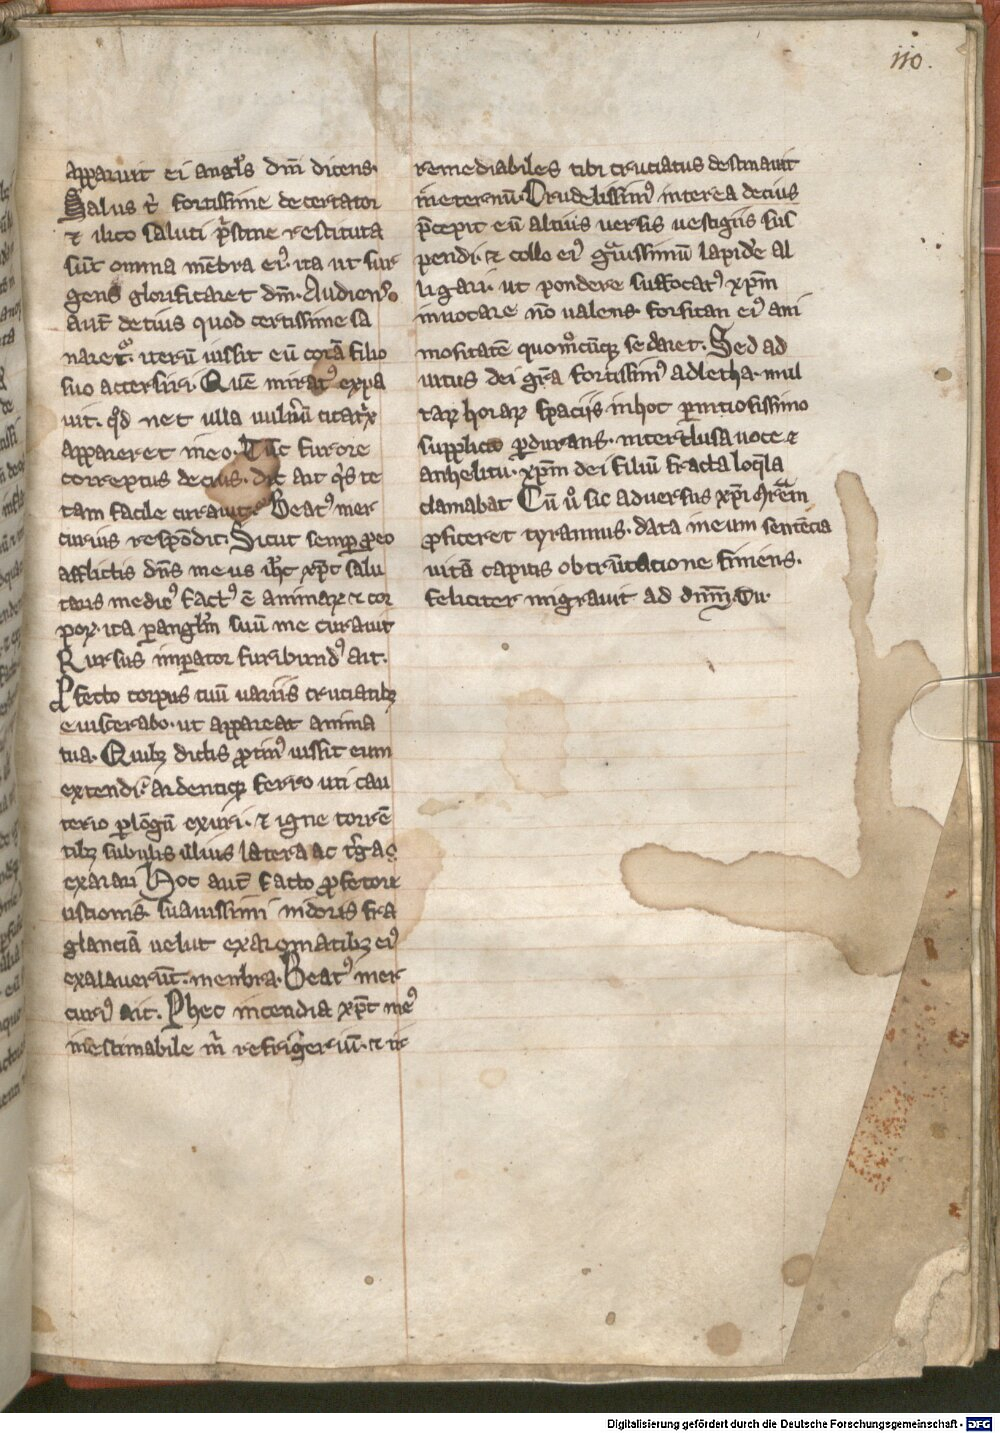 110.
apparuit ei angl's dn̄i dicens.
Salus t' fortissime decertator
⁊ ilico saluti p'stine restituta
sūt omnia mēbra ei'. ita ut sur
gens glorificaret dn̄m. Audiens
aut̄ decius quod certissime sa
naret'. iterū iussit eū corā filio
suo accersiri. Quē mirat' expa
uit. qd nec ulla uulnerū cicat'x
appareret in eo. Tūc furore
correptus decius. dic ait q's te
tam facile curauit. Beat' mer
curius respōdit. Sicut semp p eo
afflictis dn̄s meus ih'c xp̄c salu
taris medic' fact' ē animaꝝ ⁊ cor
poꝝ. ita p angl'm suū me curauit
Rursus impator furibund' ait.
Pfecto corpus tuū uariis cruciatibꝫ
euiscerabo. ut appareat anima
tua. Quibꝫ dictis ptin' iussit eum
extendi. ardentiqꝫ ferro uti cau
terio plōgū exuri. ⁊ igne torrē
tibꝫ subulis illius latera ac t'ga
exarari. Hoc aut̄ facto p fetore
ustionis. suauissimi nidoris fra
glanciā uelut ex aromatibꝫ ei'
exalauerūt. menbra. Beat' mer
curi' ait. P hec incendia xp̄c me'
inestimabile m' refrigeriū. ⁊ ir
remediabiles tibi cruciatus destinauit
in eternū. Crudelissim' interea decius
p̄cepit eū altius uersis uestigiis sus
pendi. ⁊ collo ei' g'uissimū lapidē al
ligari. ut pondere suffocat' xp̄m
inuocare nō ualens. forsitan ei' ani
mositatē quom°cūqꝫ sedaret. Sed ad
iutus dei gr̄a fortissim' adletha. mul
taꝝ horaꝝ spaciis in hoc pniciosissimo
supplicio pdurans. interclusa uoce ⁊
anhelitu. xp̄m dei filiū fracta loq̄la
clamabat Cū u° sic aduersus xp̄i mr̄em
pficeret tyrannus. data in eum sentēcia
uitā capitis obtrūcatione finiens.
feliciter migrauit ad dn̄m.
Digitalisierung gefördert durch die Deutsche Forschungsgemeinschaft - DFG